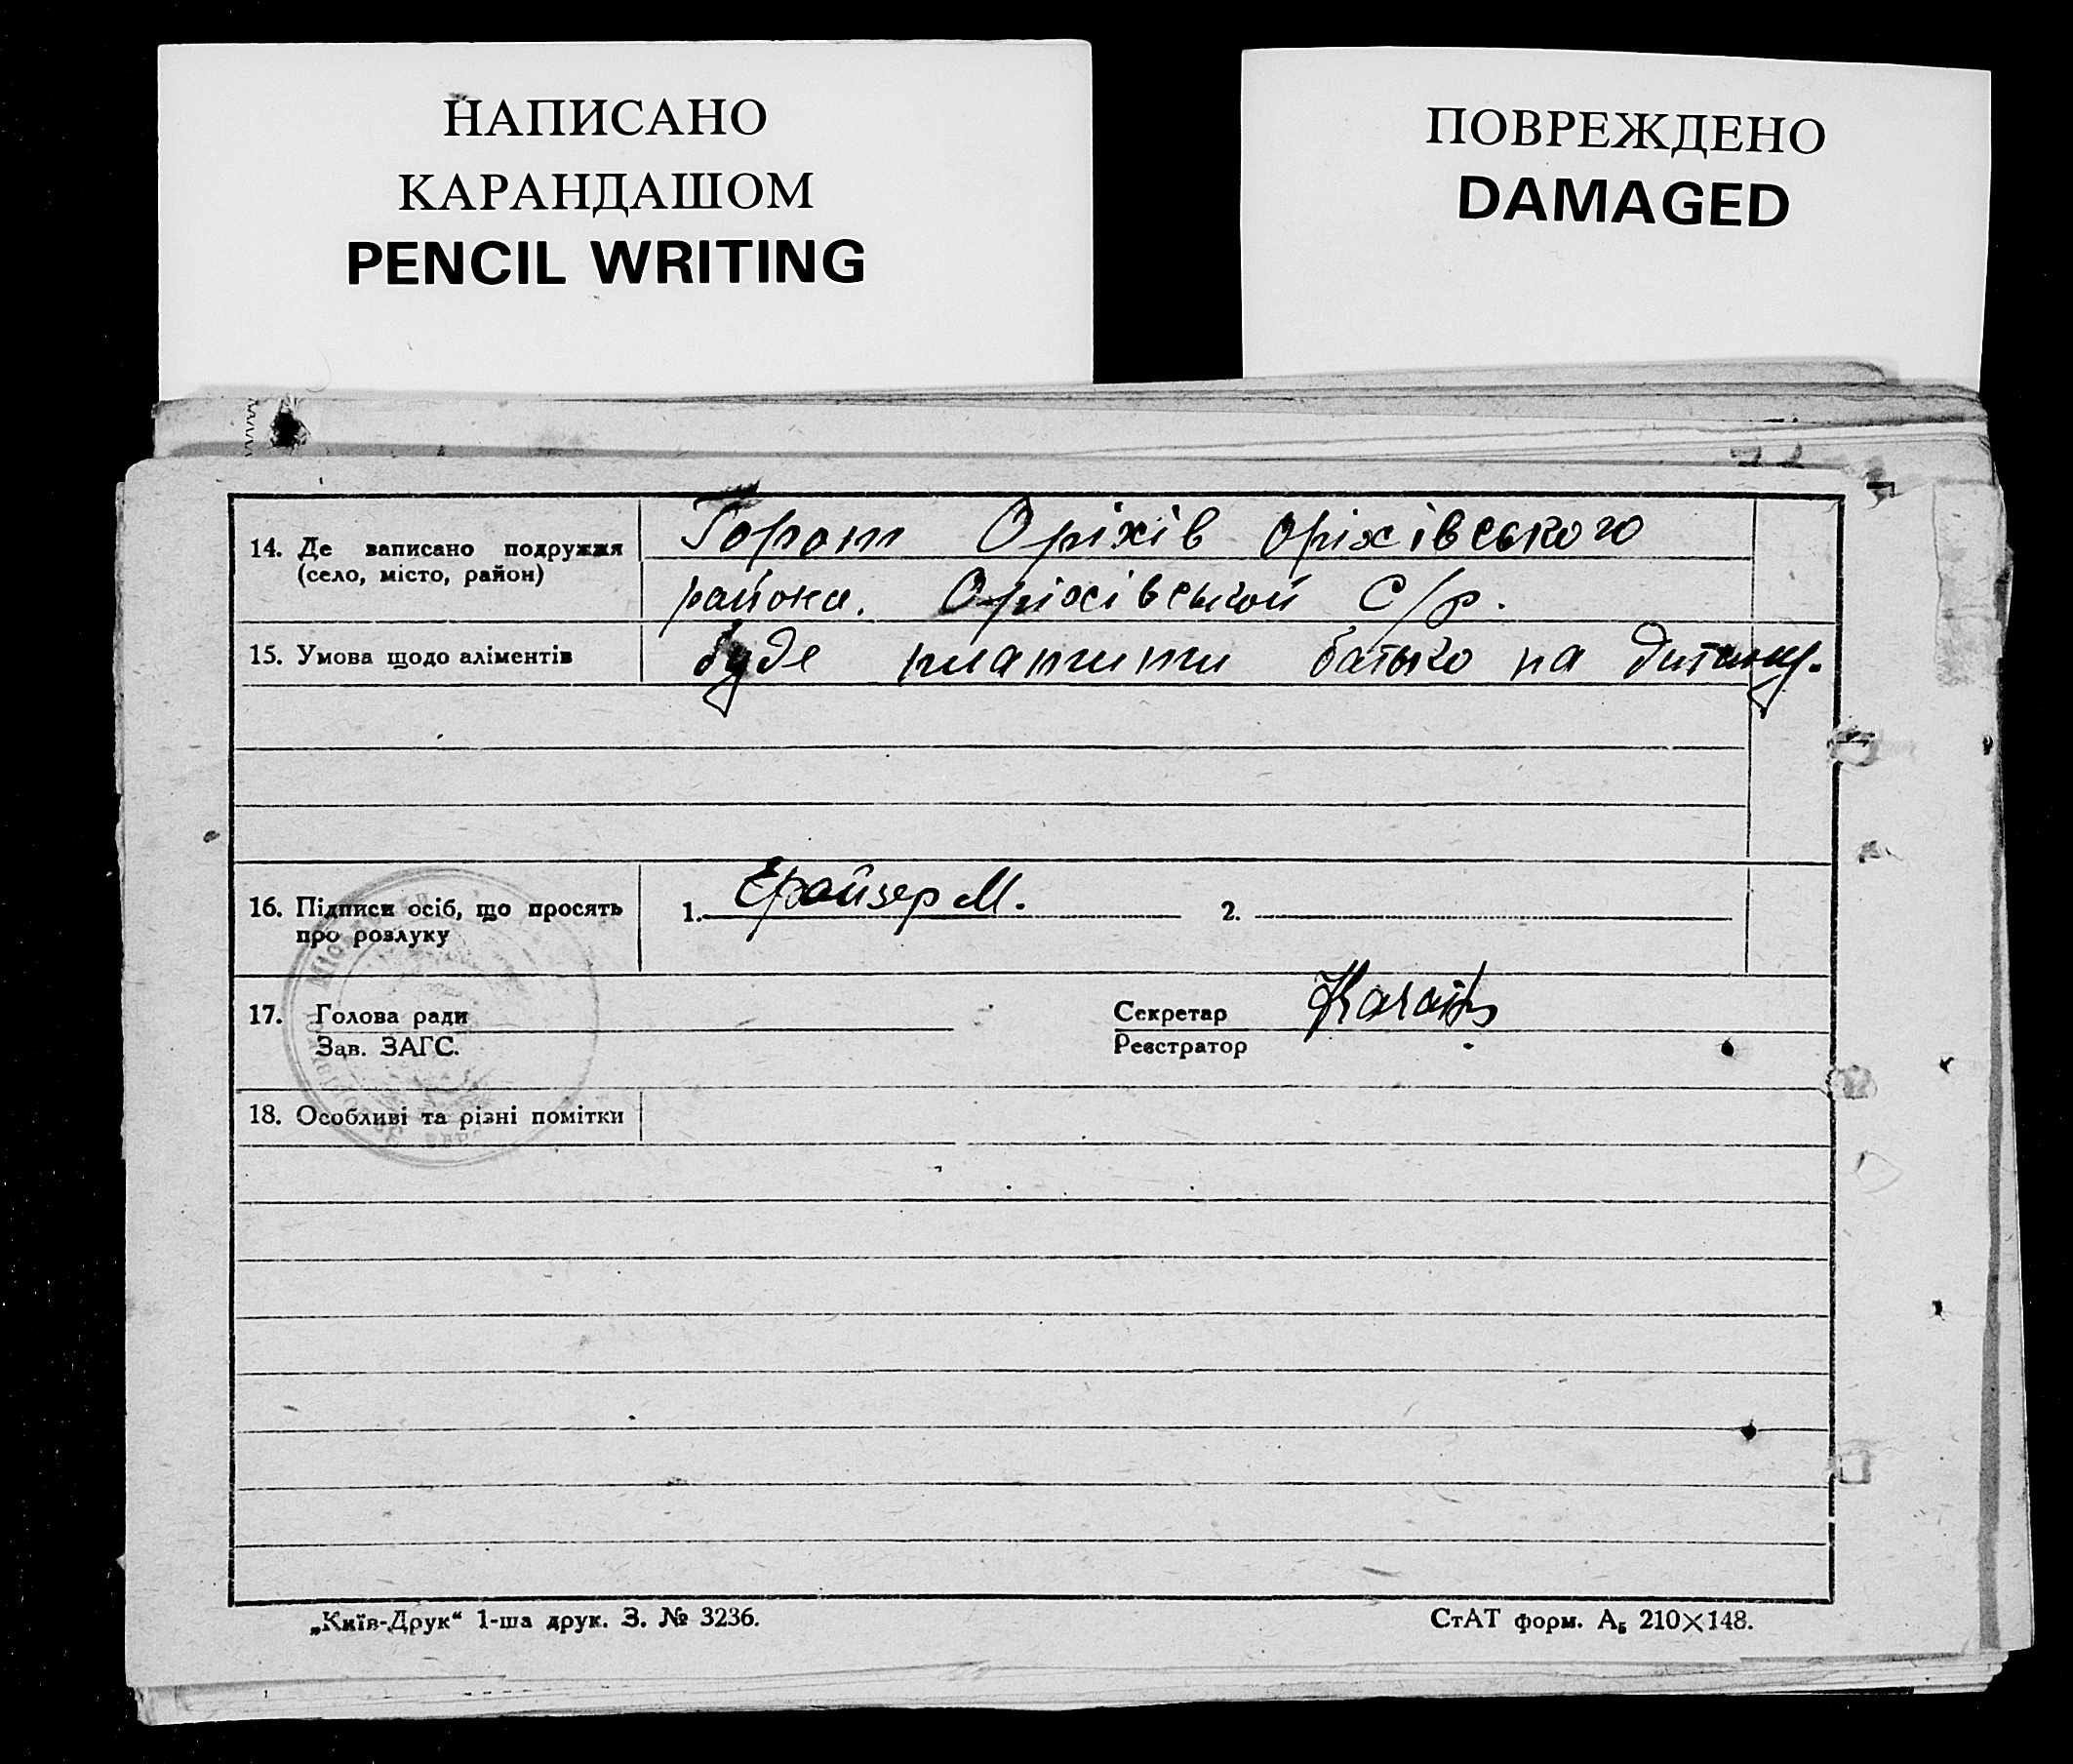 НАПИСАНО
КАРАНДАШОМ
PENCIL WRITING
ПОВРЕЖДЕНО
DAMAGED
14. Де записано подружжя (село, місто, район)
Город Оріхів Оріхівського
района. Оріхівськой С/р.
15. Умова щодо аліментів буде платити батько на дитину.
16. Підписи осіб, що просять про розлуку 1. М. 2.
17. Голова ради Секретар
Зав. ЗАГС. Реєстратор
18. Особливі та різні помітки
„Київ-Друк“ 1-ша друк. З. № 3236. СтАТ форм. А₅ 210×148.